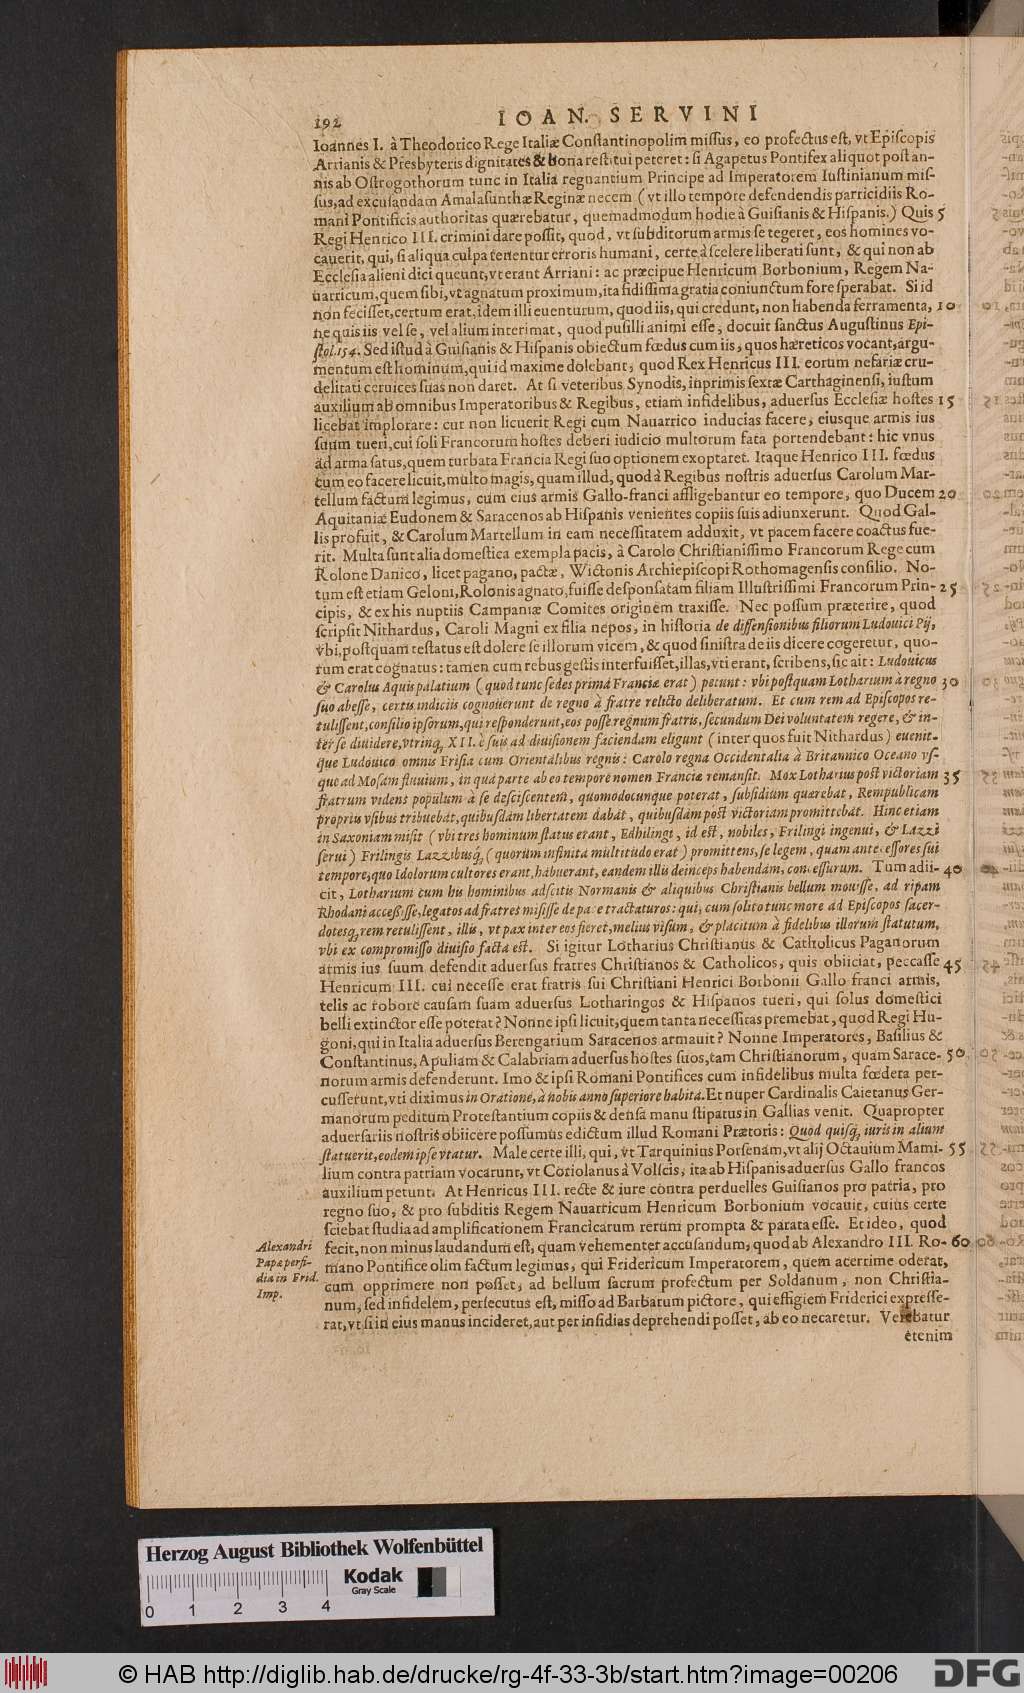 192 IOAN. SERVINI
Ioannes I. à Theodorico Rege Italiæ Constantinopolim missus, eo profectus est, vt Episcopis
Arrianis & Presbyteris dignitates & bona restitui peteret: si Agapetus Pontifex aliquot post an-
nis ab Ostrogothorum tunc in Italia regnantium Principe ad Imperatorem Iustinianum mis-
sus, ad excusandam Amalasunthæ Reginæ necem ( vt illo tempore defendendis parricidiis Ro-
mani Pontificis authoritas quærebatur, quemadmodum hodie à Guisianis & Hispanis.) Quis 5
Regi Henrico III. crimini dare possit, quod, vt subditorum armis se tegeret, eos homines vo-
cauerit, qui, si aliqua culpa tenentur erroris humani, certe à scelere liberati sunt, & qui non ab
Ecclesia alieni dici queunt, vt erant Arriani: ac præcipue Henricum Borbonium, Regem Na-
uarricum, quem sibi, vt agnatum proximum, ita fidissima gratia coniunctum fore sperabat. Si id
non fecisset, certum erat, idem illi euenturum, quod iis, qui credunt, non habenda ferramenta, 10
ne quis iis vel se, vel alium interimat, quod pusilli animi esse, docuit sanctus Augustinus Epi-
stol. 154. Sed istud à Guisianis & Hispanis obiectum fœdus cum iis, quos hæreticos vocant, argu-
mentum est hominum, qui id maxime dolebant, quod Rex Henricus III. eorum nefariæ cru-
delitati ceruices suas non daret. At si veteribus Synodis, inprimis sextæ Carthaginensi, iustum
auxilium ab omnibus Imperatoribus & Regibus, etiam infidelibus, aduersus Ecclesiæ hostes 15
licebat implorare: cur non licuerit Regi cum Nauarrico inducias facere, eiusque armis ius
suum tueri, cui soli Francorum hostes deberi iudicio multorum fata portendebant: hic vnus
ad arma satus, quem turbata Francia Regi suo optionem exoptaret. Itaque Henrico III. fœdus
cum eo facere licuit, multo magis, quam illud, quod à Regibus nostris aduersus Carolum Mar-
tellum factum legimus, cum eius armis Gallo-franci affligebantur eo tempore, quo Ducem 20
Aquitaniæ Eudonem & Saracenos ab Hispanis venientes copiis suis adiunxerunt. Quod Gal-
lis profuit, & Carolum Martellum in eam necessitatem adduxit, vt pacem facere coactus fue-
rit. Multa sunt alia domestica exempla pacis, à Carolo Christianissimo Francorum Rege cum
Rolone Danico, licet pagano, pactæ, Wictonis Archiepiscopi Rothomagensis consilio. No-
tum est etiam Geloni, Rolonis agnato, fuisse desponsatam filiam Illustrissimi Francorum Prin- 25
cipis, & ex his nuptiis Campaniæ Comites originem traxisse. Nec possum præterire, quod
scripsit Nithardus, Caroli Magni ex filia nepos, in historia de dissensionibus filiorum Ludouici Pij,
vbi, postquam testatus est dolere se illorum vicem, & quod sinistra de iis dicere cogeretur, quo-
rum erat cognatus: tamen cum rebus gestis interfuisset, illas, vti erant, scribens, sic ait: Ludouicus
& Carolus Aquis palatium ( quod tunc sedes prima Franciæ erat ) petunt: vbi postquam Lotharium à regno 30
suo abesse, certis indiciis cognouerunt de regno à fratre relicto deliberatum. Et cum rem ad Episcopos re-
tulissent, consilio ipsorum, qui responderunt, eos posse regnum fratris, secundum Dei voluntatem regere, & in-
ter se diuidere, vtrinq; XII. è suis ad diuisionem faciendam eligunt ( inter quos fuit Nithardus ) euenit-
que Ludouico omnis Frisia cum Orientalibus regnis: Carolo regna Occidentalia à Britannico Oceano vs-
que ad Mosam fluuium, in qua parte ab eo tempore nomen Franciæ remansit. Mox Lotharius post victoriam 35
fratrum videns populum à se desciscentem, quomodocunque poterat, subsidium quærebat, Rempublicam
propriis vsibus tribuebat, quibusdam libertatem dabat, quibusdam post victoriam promittebat. Hinc etiam
in Saxoniam misit ( vbi tres hominum status erant, Edhilingi, id est, nobiles, Frilingi ingenui, & Lazzi
serui ) Frilingis Lazzibusq; ( quorum infinita multitudo erat ) promittens, se legem, quam antecessores sui
tempore, quo Idolorum cultores erant, habuerant, eandem illis deinceps habendam, concessurum. Tum adii- 40
cit, Lotharium cum his hominibus adscitis Normanis & aliquibus Christianis bellum mouisse, ad ripam
Rhodani accessisse, legatos ad fratres misisse de pace tractaturos: qui, cum solito tunc more ad Episcopos sacer-
dotesq; rem retulissent, illis, vt pax inter eos fieret, melius visum, & placitum à fidelibus illorum statutum,
vbi ex compromisso diuisio facta est. Si igitur Lotharius Christianus & Catholicus Paganorum
armis ius suum defendit aduersus fratres Christianos & Catholicos, quis obiiciat, peccasse 45
Henricum III. cui necesse erat fratris sui Christiani Henrici Borbonii Gallo franci armis,
telis ac robore causam suam aduersus Lotharingos & Hispanos tueri, qui solus domestici
belli extinctor esse poterat? Nonne ipsi licuit, quem tanta necessitas premebat, quod Regi Hu-
goni, qui in Italia aduersus Berengarium Saracenos armauit? Nonne Imperatores, Basilius &
Constantinus, Apuliam & Calabriam aduersus hostes suos, tam Christianorum, quam Sarace- 50
norum armis defenderunt. Imo & ipsi Romani Pontifices cum infidelibus multa fœdera per-
cusserunt, vti diximus in Oratione, à nobis anno superiore habita. Et nuper Cardinalis Caietanus Ger-
manorum peditum Protestantium copiis & densa manu stipatus in Gallias venit. Quapropter
aduersariis nostris obiicere possumus edictum illud Romani Prætoris: Quod quisq; iuris in alium
statuerit, eodem ipse vtatur. Male certe illi, qui, vt Tarquinius Porsenam, vt alij Octauium Mami- 55
lium contra patriam vocarunt, vt Coriolanus à Volscis, ita ab Hispanis aduersus Gallo francos
auxilium petunt. At Henricus III. recte & iure contra perduelles Guisianos pro patria, pro
regno suo, & pro subditis Regem Nauarricum Henricum Borbonium vocauit, cuius certe
sciebat studia ad amplificationem Francicarum rerum prompta & parata esse. Et ideo, quod
fecit, non minus laudandum est, quam vehementer accusandum, quod ab Alexandro III. Ro- 60
mano Pontifice olim factum legimus, qui Fridericum Imperatorem, quem acerrime oderat,
cum opprimere non posset, ad bellum sacrum profectum per Soldanum, non Christia-
num, sed infidelem, persecutus est, misso ad Barbarum pictore, qui effigiem Friderici expresse-
rat, vt si in eius manus incideret, aut per insidias deprehendi posset, ab eo necaretur. Verebatur
etenim
Alexandri
Papæ perfi-
dia in Frid.
Imp.
Herzog August Bibliothek Wolfenbüttel
Kodak
Gray Scale
0 1 2 3 4
© HAB http://diglib.hab.de/drucke/rg-4f-33-3b/start.htm?image=00206
DFG